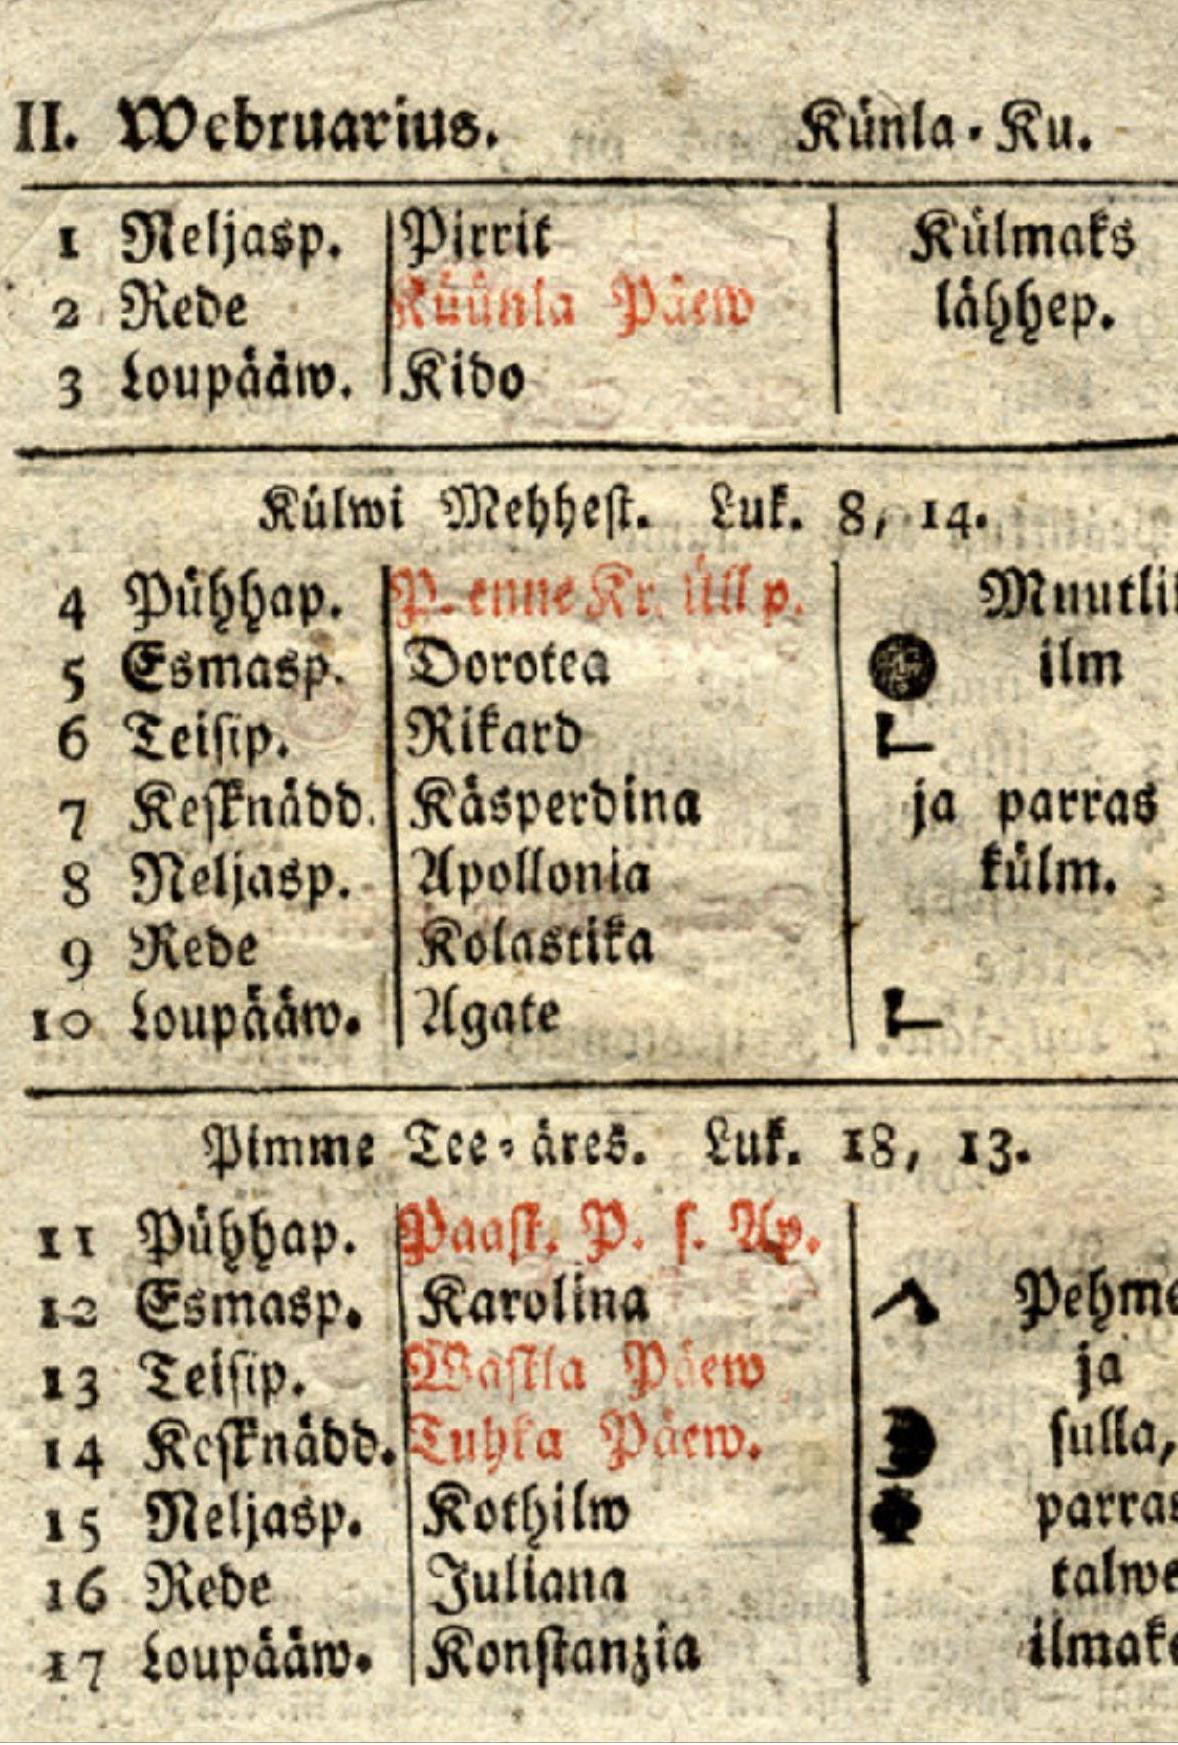 II. Webruarius. Künla-Ku.
1 Neljasp. Pirrit Külmaks
2 Rede Küünla Päew lähhep.
3 Loupääw. Kido
Külwi Mehhest. Luk. 8, 14.
4 Pühhap. P. enne Kr. üll p. Muutlik
5 Esmasp. Dorotea ilm
6 Teisip. Rikard
7 Kesknädd. Käsperdina ja parras
8 Neljasp. Apollonia külm.
9 Rede Kolastika
10 Loupääw. Agate
Pimme Tee-äres. Luk. 18, 13.
11 Pühhap. Paast. P. s. Ap.
12 Esmasp. Karolina Pehme
13 Teisip. Wastla Päew ja
14 Kesknädd. Tuhka Päew. sulla,
15 Neljasp. Kothilw parras
16 Rede Juliana talwe
17 Loupääw. Konstanzia ilmaks